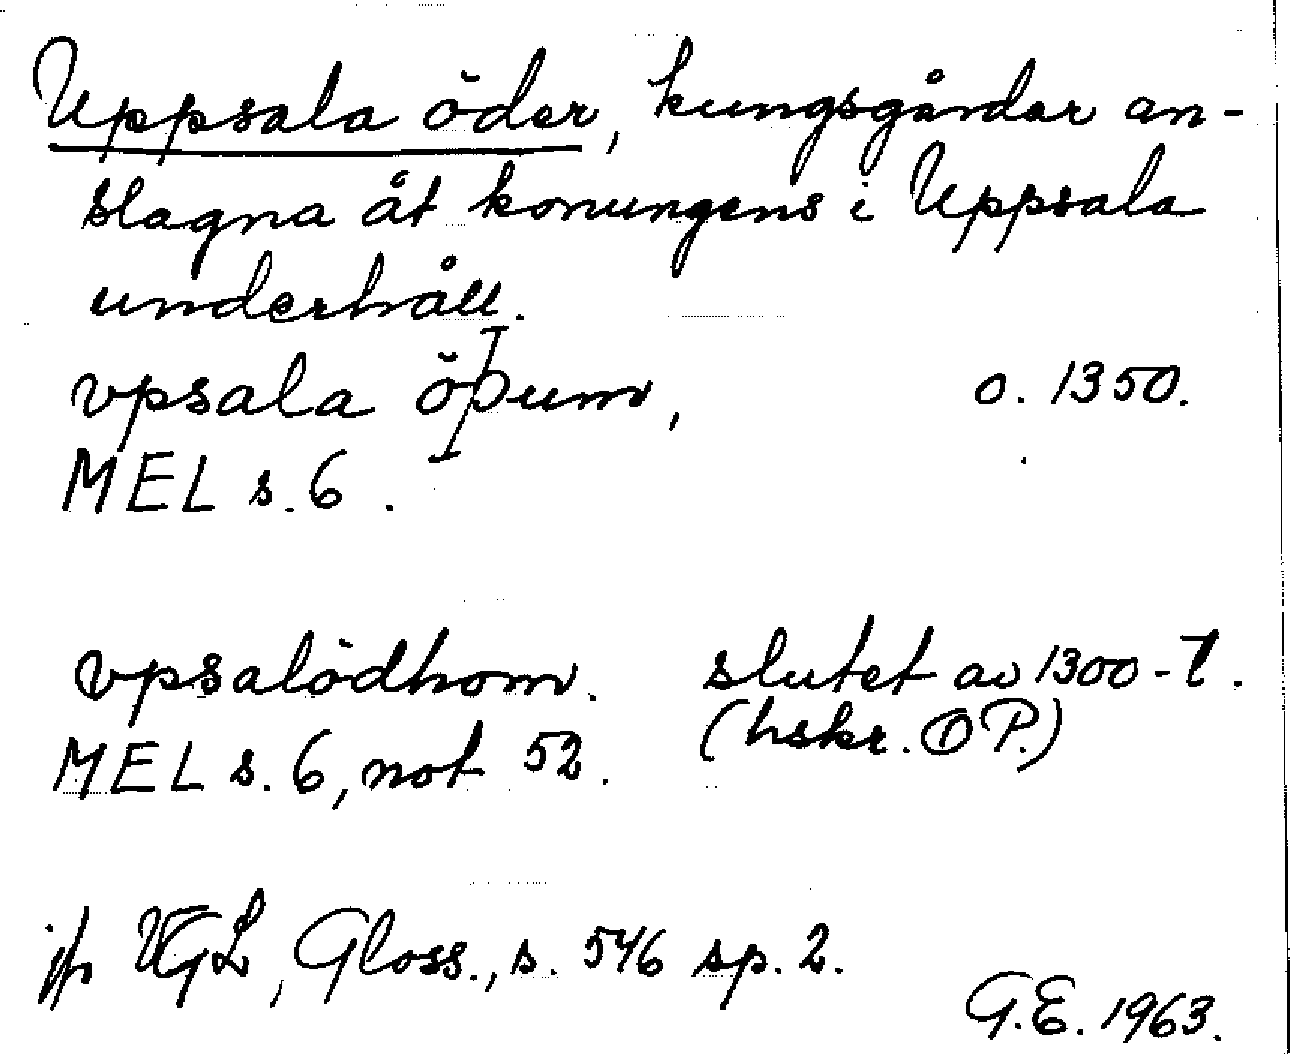 Uppsala öder, kungsgårdar an-
slagna åt konungens i Uppsala
underhåll.
vpsala öþum, o. 1350.
MEL s. 6.
vpsalödhom. slutet av 1300-t.
MEL s. 6, not 52. (hskr. O P.)
jfr VGL, Gloss., s. 546 sp. 2.
G.E. 1963.